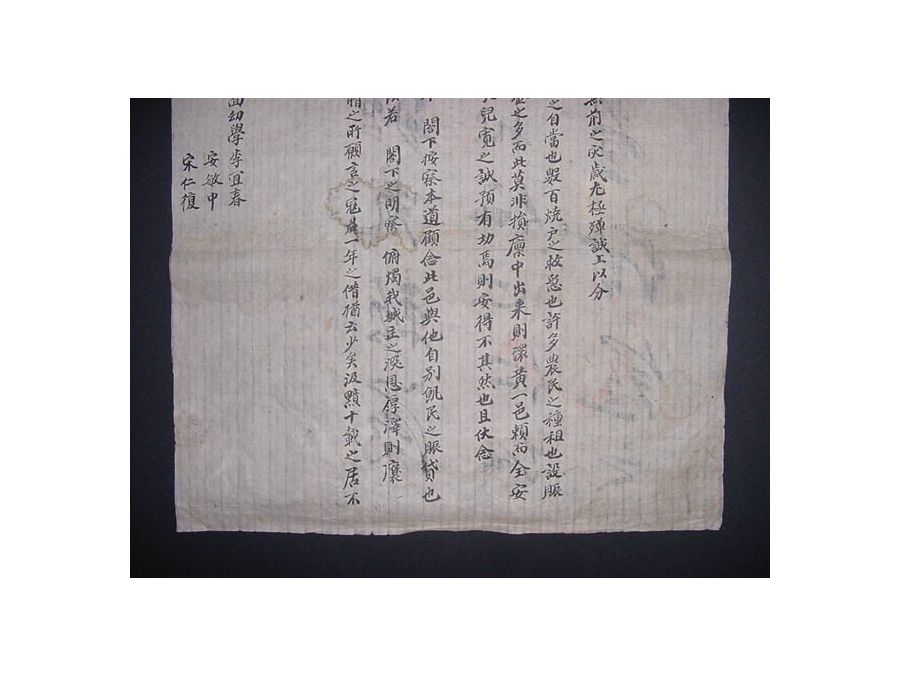 無前之歉歲尤極殫誠上以分
之自當也數百燒戶之救急也許多農民之種租也設賑
之多而此莫非捐廩中出來則環黃一邑賴而全安
兒寬之誠預有功焉則安得不其然也且伏念
閤下按察本道顧念此邑與他自別飢民之賑貸也
若 閤下之明察 俯燭我城主之深恩厚澤則
之所願言之寇 一年之借猶云少矣汲黯十載之居不
面幼學李宜春
安敏中
宋仁復